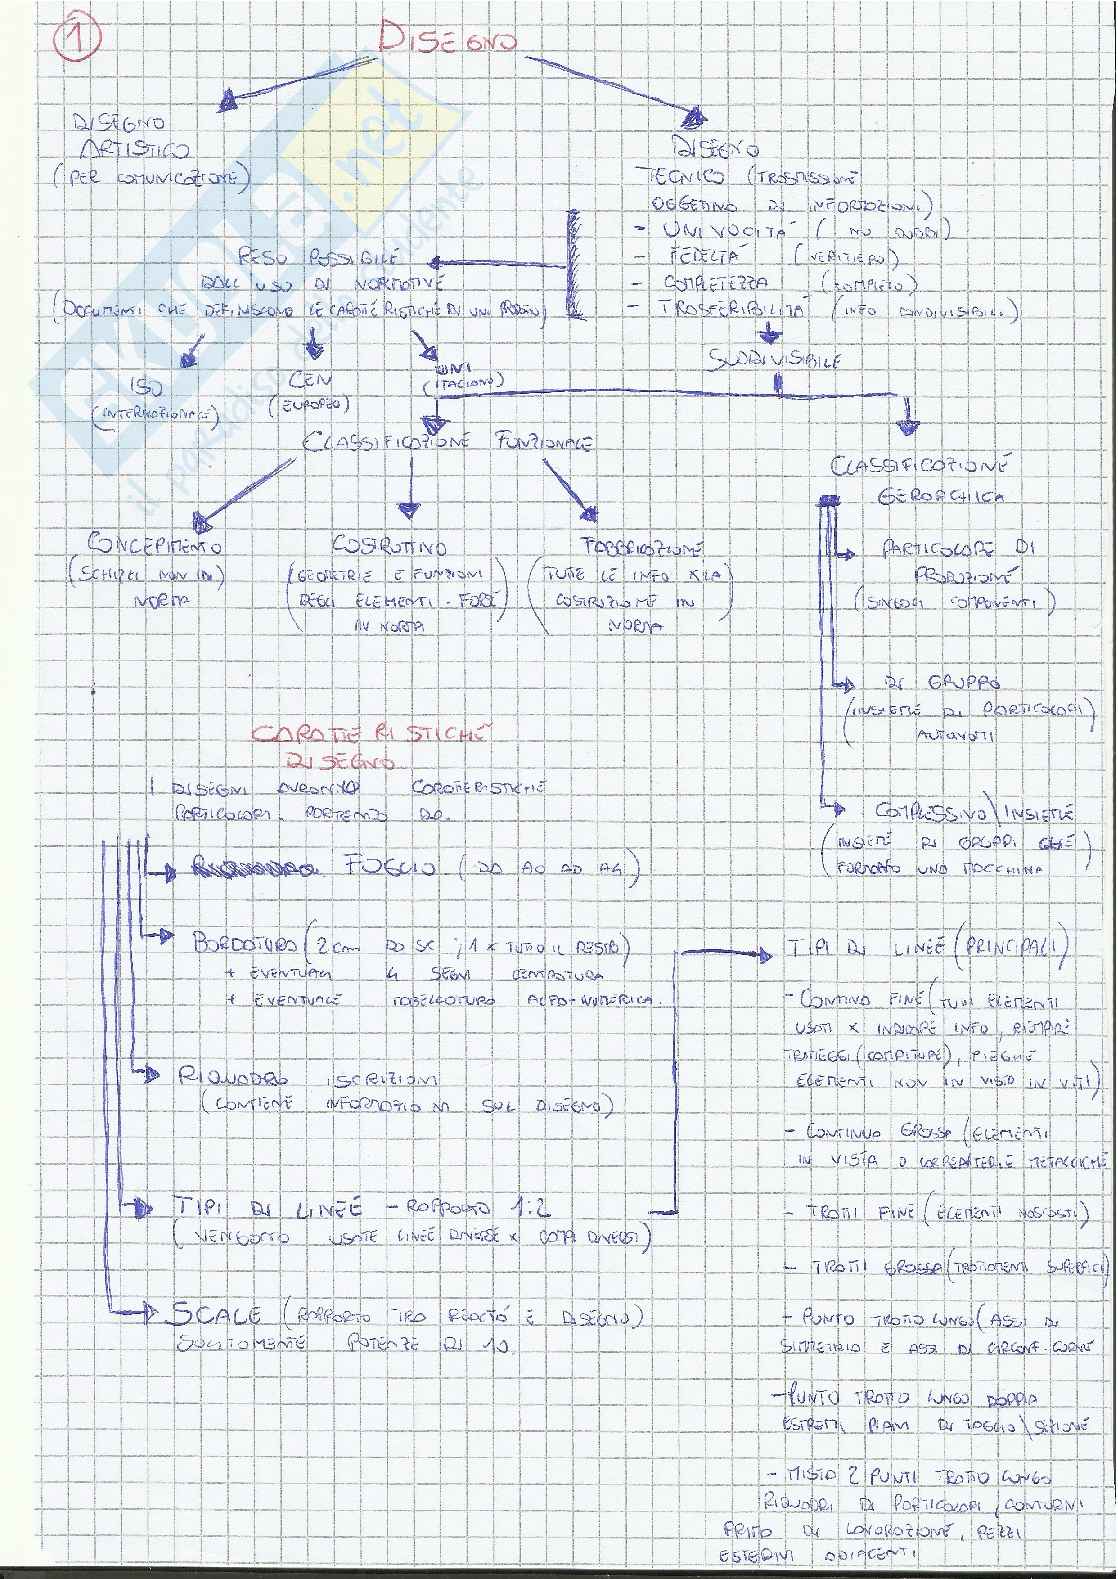 1
DISEGNO
DISEGNO
ARTISTICO
(PER COMUNICAZIONE)
DISEGNO
TECNICO (TRASMISSIONE
OGGETTIVA DI INFORMAZIONI)
- UNIVOCITÀ
- FEDELTÀ (VERITIERO)
- COMPLETEZZA (COMPLETO)
- TRASFERIBILITÀ (INFO CONDIVISIBILI)
SUDDIVISIBILE
RESO POSSIBILE
DALL'USO DI NORMATIVE
(DOCUMENTI CHE DEFINISCONO LE CARATTERISTICHE DI UN PRODOTTO)
ISO
(INTERNAZIONALE)
CEN
(EUROPEO)
UNI
(ITALIANO)
CLASSIFICAZIONE FUNZIONALE
CONCEPIMENTO
(SCHIZZI NON IN
NORMA
COSTRUTTIVO
(GEOMETRIE E FUNZIONI
DEGLI ELEMENTI - FORSE
IN NORMA
FABBRICAZIONE
(TUTTE LE INFO X LA
COSTRUZIONE IN
NORMA
CLASSIFICAZIONE
GERARCHICA
PARTICOLARE DI
PRODUZIONE
(SINGOLI COMPONENTI)
DI GRUPPO
(INSIEME DI PARTICOLARI
COMPLESSIVO\INSIEME
(INSIEME DI GRUPPI CHE
FORMANO UNA MACCHINA
CARATTERISTICHE
DISEGNO
I DISEGNI AVRANNO CARATTERISTICHE
PARTICOLARI PARTENDO DA.
FOGLIO (DA A0 AD A4)
BORDATURA (2 cm DA SX ; 1 X TUTTO IL RESTO)
+ EVENTUALI 4 SEGNI CENTRATURA
+ EVENTUALE TABELLATURA ALFA-NUMERICA.
RIQUADRO ISCRIZIONI
(CONTIENE INFORMAZIONI SUL DISEGNO)
TIPI DI LINEE - RAPPORTO 1:2
(VENGONO USATE LINEE DIVERSE X COSE DIVERSE)
SCALE (RAPPORTO TRA REALTÀ E DISEGNO)
SOLITAMENTE POTENZE DI 10.
TIPI DI LINEE (PRINCIPALI)
- CONTINUA FINE (TUTTI ELEMENTI
USATI X INDICARE INFO,
TRATTEGGI (CAMPITURE), PIEGHE
ELEMENTI NON IN VISTA IN VITI)
- CONTINUA GROSSA (ELEMENTI
IN VISTA O
- TRATTI FINE (ELEMENTI NASCOSTI)
- TRATTI GROSSA (TRATTAMENTI SUPERFICI)
+ PUNTO TRATTO LUNGO (ASSI DI
SIMMETRIA E ASSI DI CIRCONF.
- PUNTO TRATTO LUNGO DOPPIA
ESTREMI PIANI DI TAGLIO\SEZIONE
- MISTA 2 PUNTI TRATTO LUNGO
RIQUADRI DI PARTICOLARI, CONTORNI
PRIMA DI LAVORAZIONE, PEZZI
ESTERNI ADIACENTI
SKUOLA.net
il paradiso dello studente